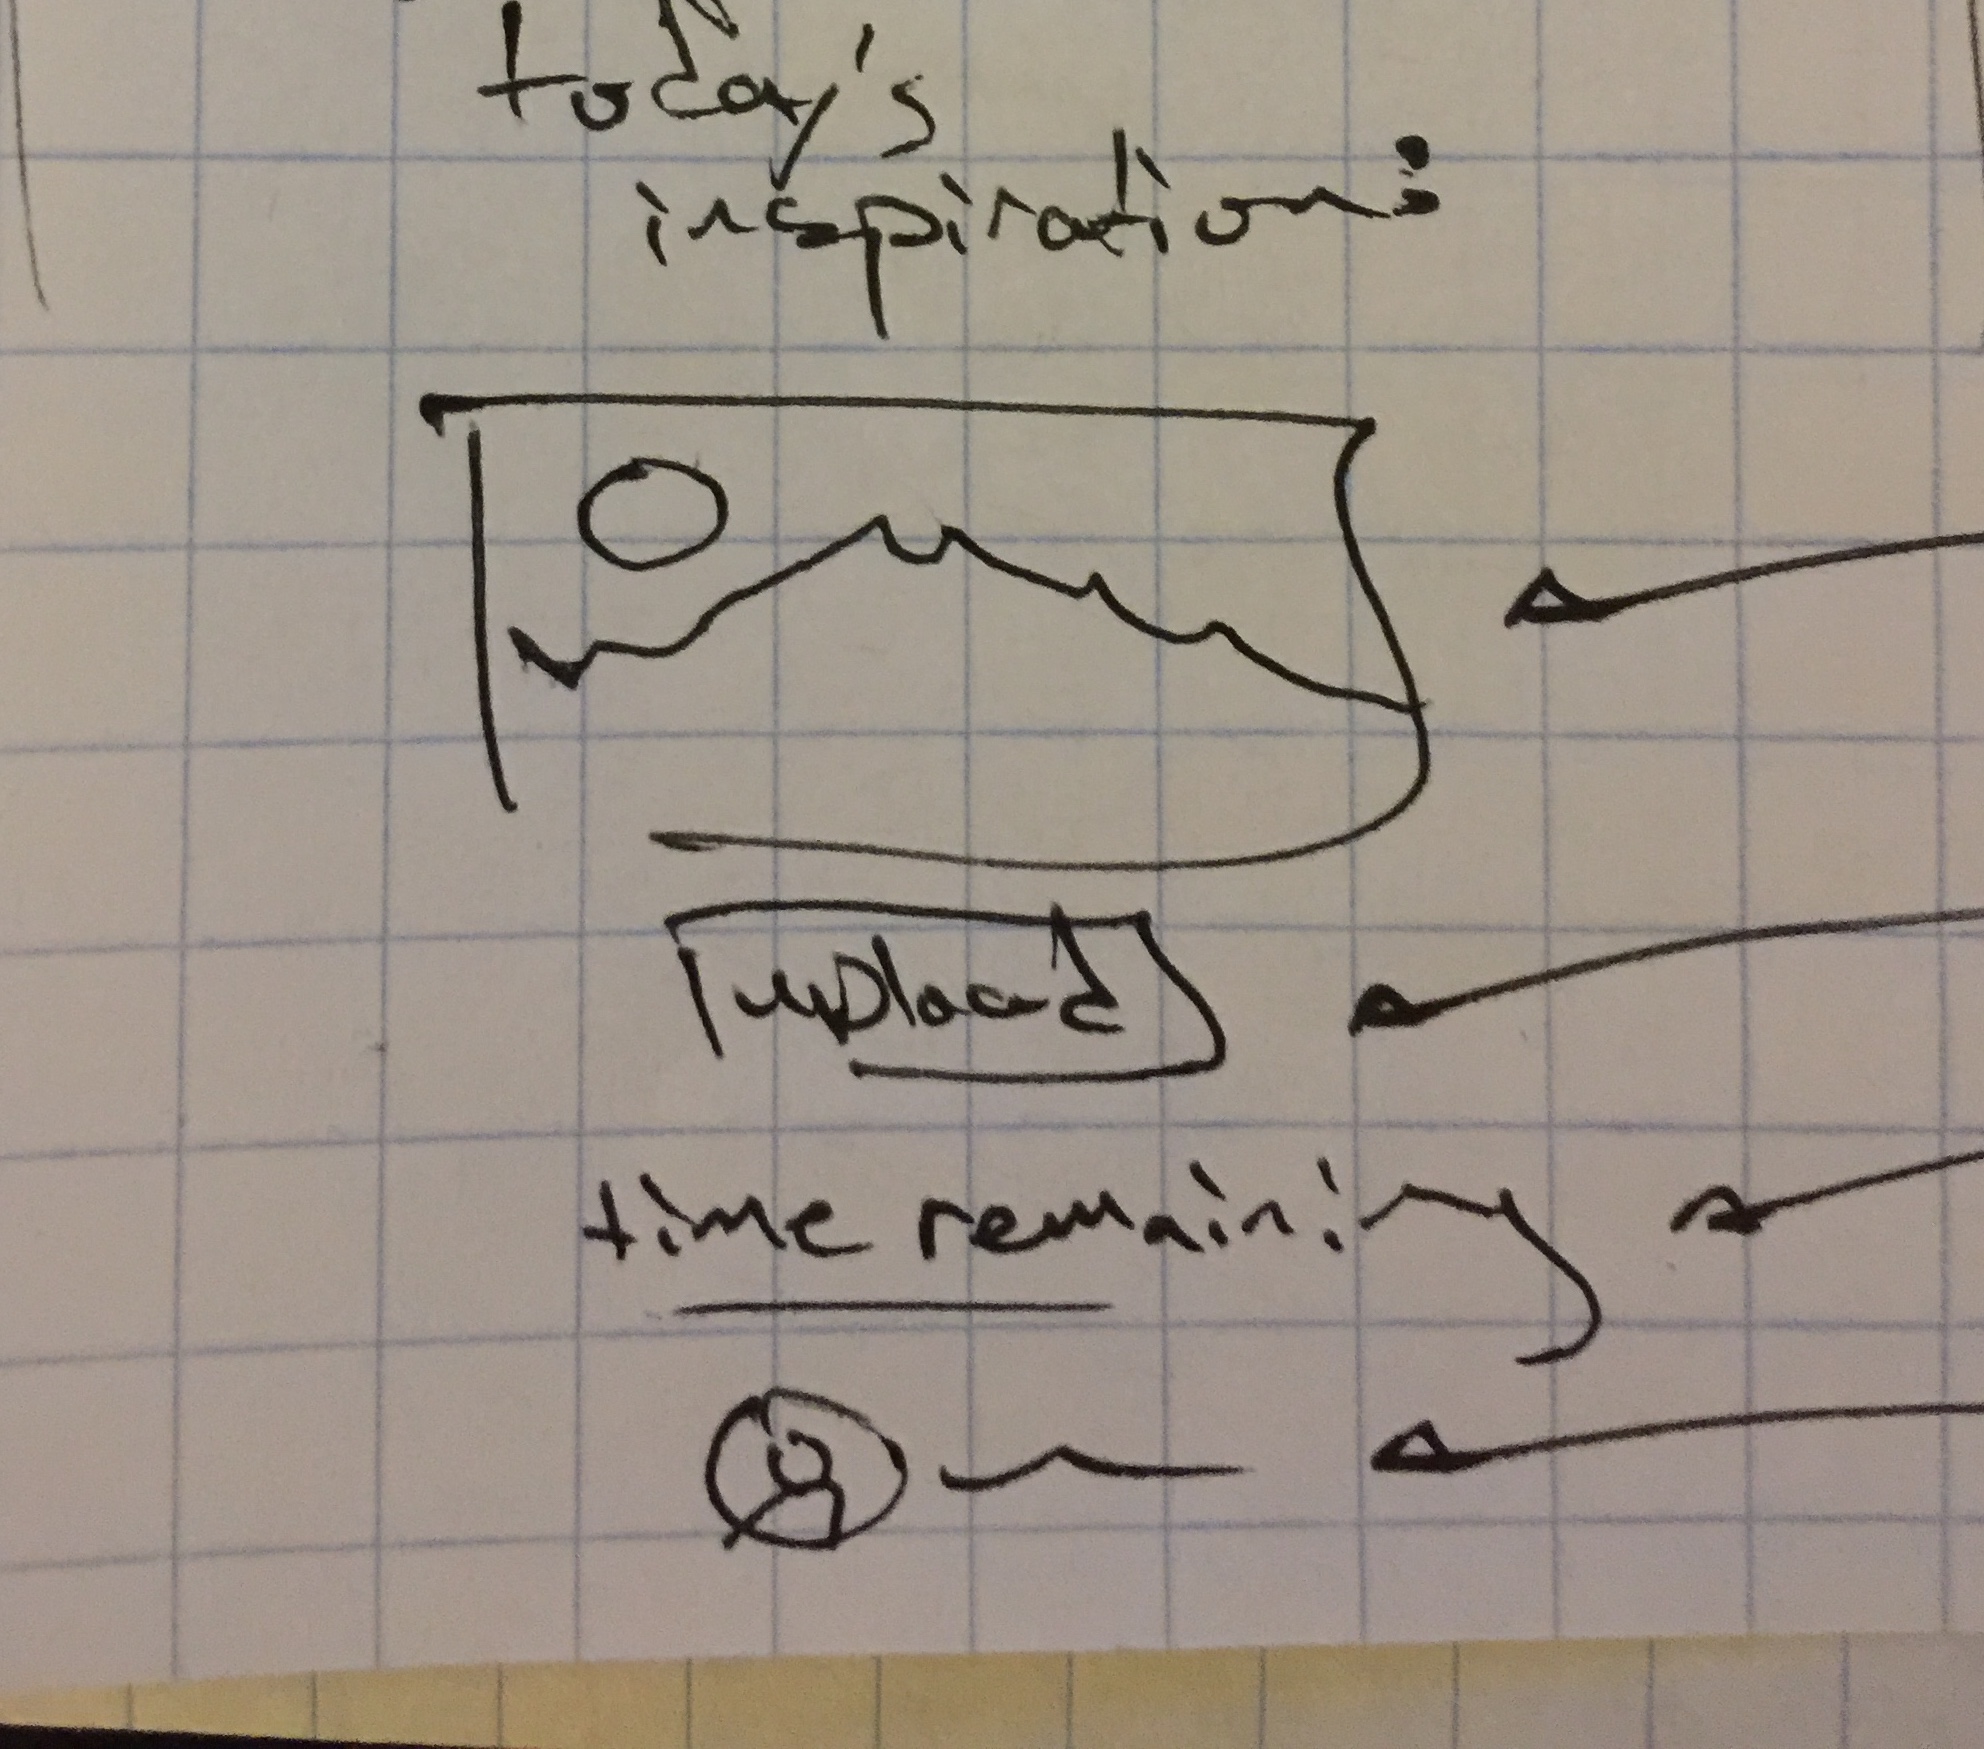 today's
inspiration:
upload
time remaining